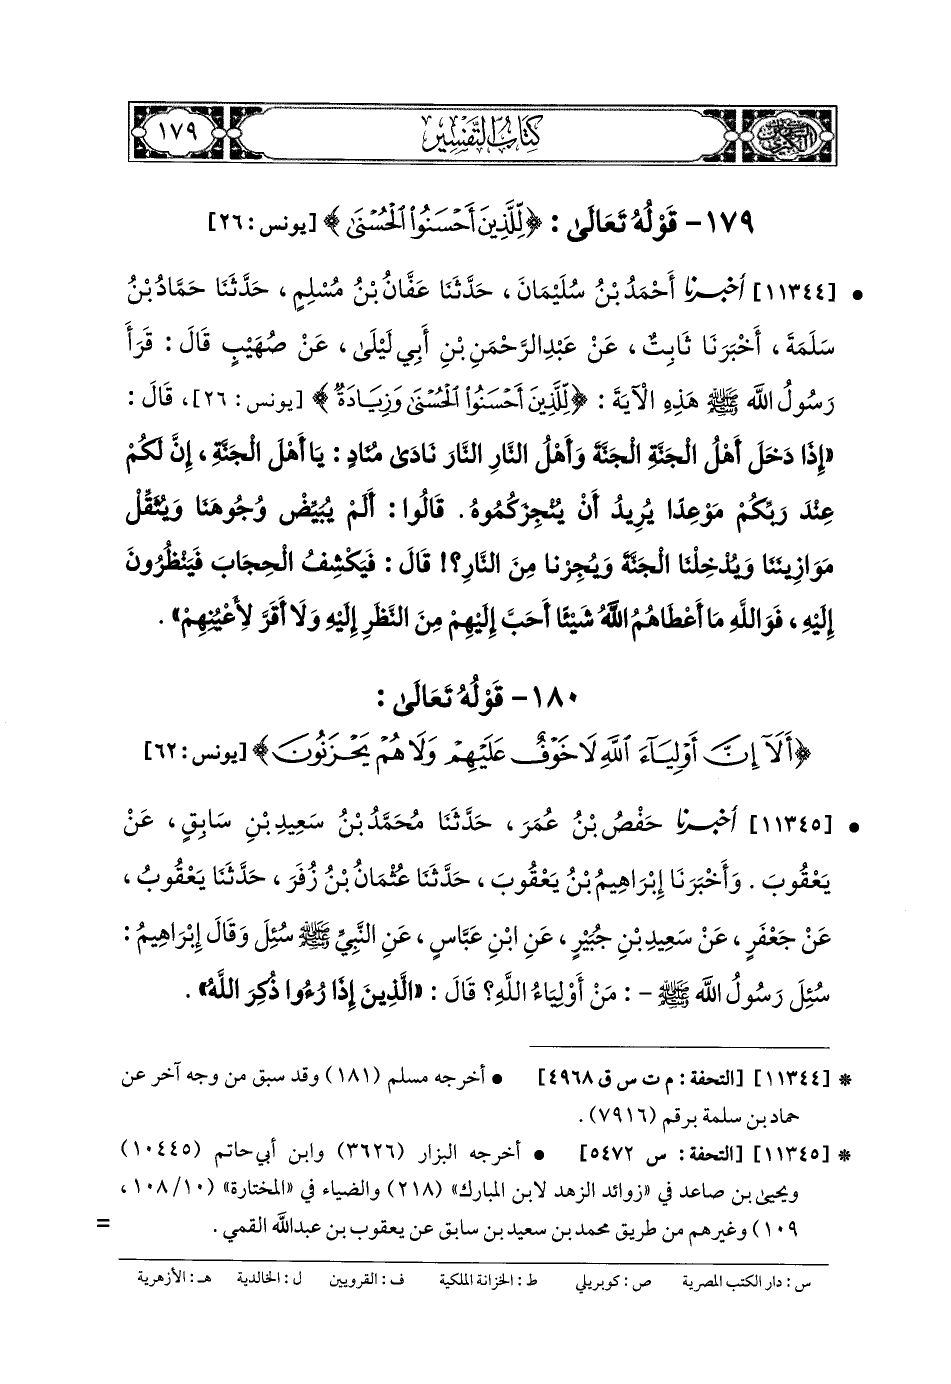 كتاب التفسير
١٧٩
١٧٩- قَوْلُهُ تَعَالَىٰ : ﴿لِّلَّذِينَ أَحْسَنُوا۟ ٱلْحُسْنَىٰ﴾ [يونس : ٢٦]
• [١١٣٤٤] أخبرنا أَحْمَدُ بْنُ سُلَيْمَانَ ، حَدَّثَنَا عَفَّانُ بْنُ مُسْلِمٍ ، حَدَّثَنَا حَمَّادُ بْنُ
سَلَمَةَ ، أَخْبَرَنَا ثَابِتٌ ، عَنْ عَبْدِ الرَّحْمَنِ بْنِ أَبِي لَيْلَى ، عَنْ صُهَيْبٍ قَالَ : قَرَأَ
رَسُولُ اللَّه ﷺ هَذِهِ الْآيَةَ : ﴿لِّلَّذِينَ أَحْسَنُوا۟ ٱلْحُسْنَىٰ وَزِيَادَةٌ﴾ [يونس : ٢٦] ، قَالَ :
«إِذَا دَخَلَ أَهْلُ الْجَنَّةِ الْجَنَّةَ وَأَهْلُ النَّارِ النَّارَ نَادَىٰ مُنَادٍ : يَا أَهْلَ الْجَنَّةِ ، إِنَّ لَكُمْ
عِنْدَ رَبِّكُمْ مَوْعِدًا يُرِيدُ أَنْ يُنْجِزَكُمُوهُ . قَالُوا : أَلَمْ يُبَيِّضْ وُجُوهَنَا وَيُثَقِّلْ
مَوَازِينَنَا وَيُدْخِلْنَا الْجَنَّةَ وَيُجِرْنَا مِنَ النَّارِ؟! قَالَ : فَيَكْشِفُ الْحِجَابَ فَيَنْظُرُونَ
إِلَيْهِ ، فَوَاللَّهِ مَا أَعْطَاهُمُ اللَّهُ شَيْئًا أَحَبَّ إِلَيْهِمْ مِنَ النَّظَرِ إِلَيْهِ وَلَا أَقَرَّ لِأَعْيُنِهِمْ» .
١٨٠- قَوْلُهُ تَعَالَىٰ :
﴿أَلَآ إِنَّ أَوْلِيَآءَ ٱللَّهِ لَا خَوْفٌ عَلَيْهِمْ وَلَا هُمْ يَحْزَنُونَ﴾ [يونس : ٦٢]
• [١١٣٤٥] أخبرنا حَفْصُ بْنُ عُمَرَ ، حَدَّثَنَا مُحَمَّدُ بْنُ سَعِيدِ بْنِ سَابِقٍ ، عَنْ
يَعْقُوبَ . وَأَخْبَرَنَا إِبْرَاهِيمُ بْنُ يَعْقُوبَ ، حَدَّثَنَا عُثْمَانُ بْنُ زُفَرَ ، حَدَّثَنَا يَعْقُوبُ ،
عَنْ جَعْفَرٍ ، عَنْ سَعِيدِ بْنِ جُبَيْرٍ ، عَنِ ابْنِ عَبَّاسٍ ، عَنِ النَّبِيِّ ﷺ سُئِلَ وَقَالَ إِبْرَاهِيمُ :
سُئِلَ رَسُولُ اللَّه ﷺ - : مَنْ أَوْلِيَاءُ اللَّهِ؟ قَالَ : «الَّذِينَ إِذَا رُءُوا ذُكِرَ اللَّهُ» .
* [١١٣٤٤] [التحفة : م ت س ق ٤٩٦٨] • أخرجه مسلم (١٨١) وقد سبق من وجه آخر عن
حماد بن سلمة برقم (٧٩١٦) .
* [١١٣٤٥] [التحفة : س ٥٤٧٢] • أخرجه البزار (٣٦٢٦) وابن أبي حاتم (١٠٤٤٥)
ويحيى بن صاعد في «زوائد الزهد لابن المبارك» (٢١٨) والضياء في «المختارة» (١٠/١٠٨ ،
١٠٩) وغيرهم من طريق محمد بن سعيد بن سابق عن يعقوب بن عبدالله القمي . =
س : دار الكتب المصرية ص : كوبريلي ط : الخزانة الملكية ف : القرويين ل : الخالدية هـ : الأزهرية